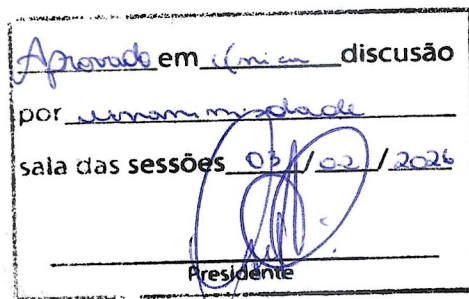 Aprovado em única discusão
por unanimidade
sala das sessões 03/02/2026
Presidente